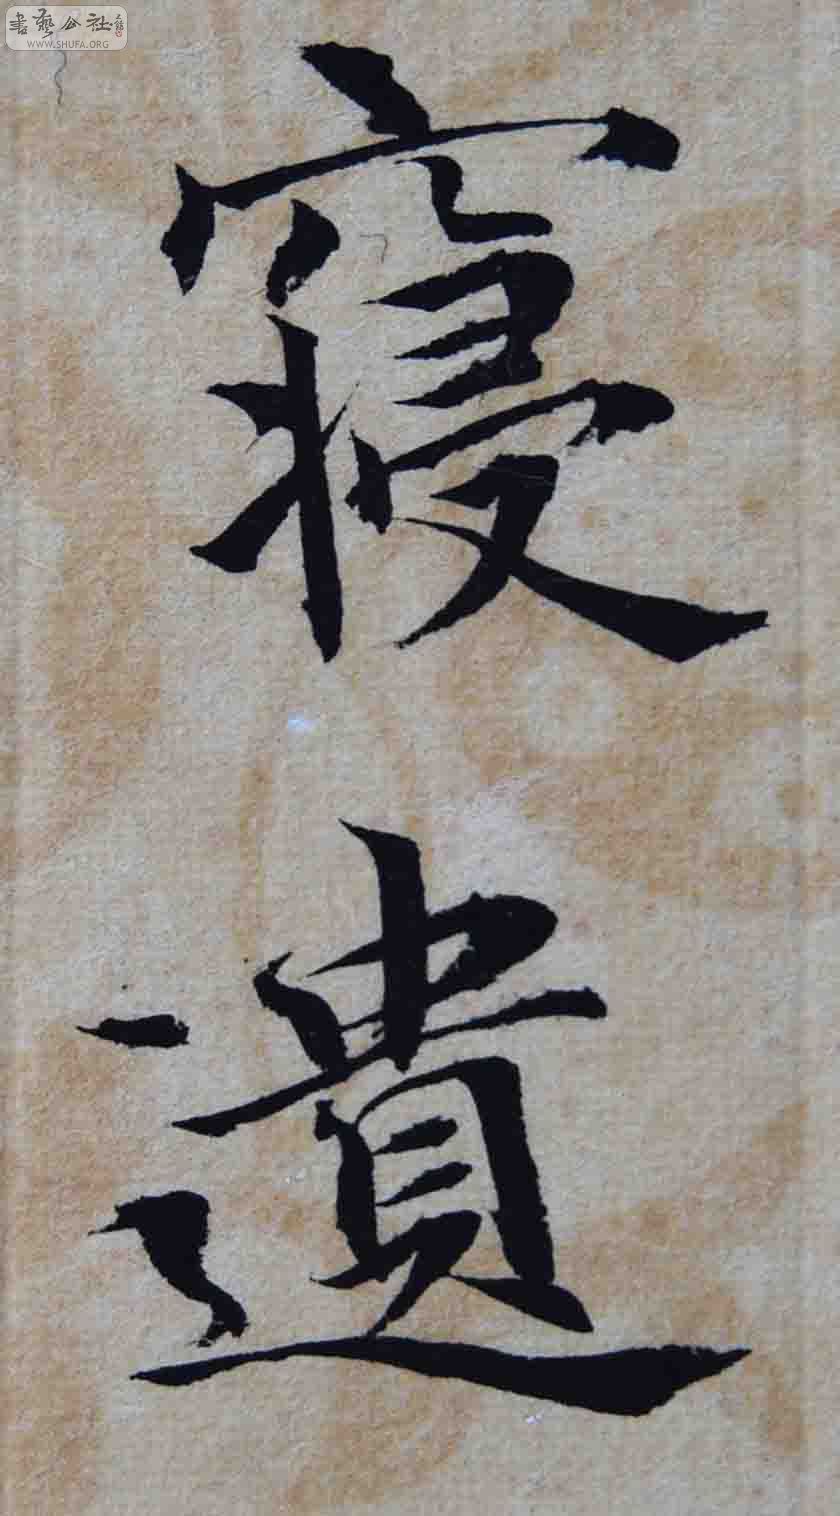 書藝公社
WWW.SHUFA.ORG
寝
遺